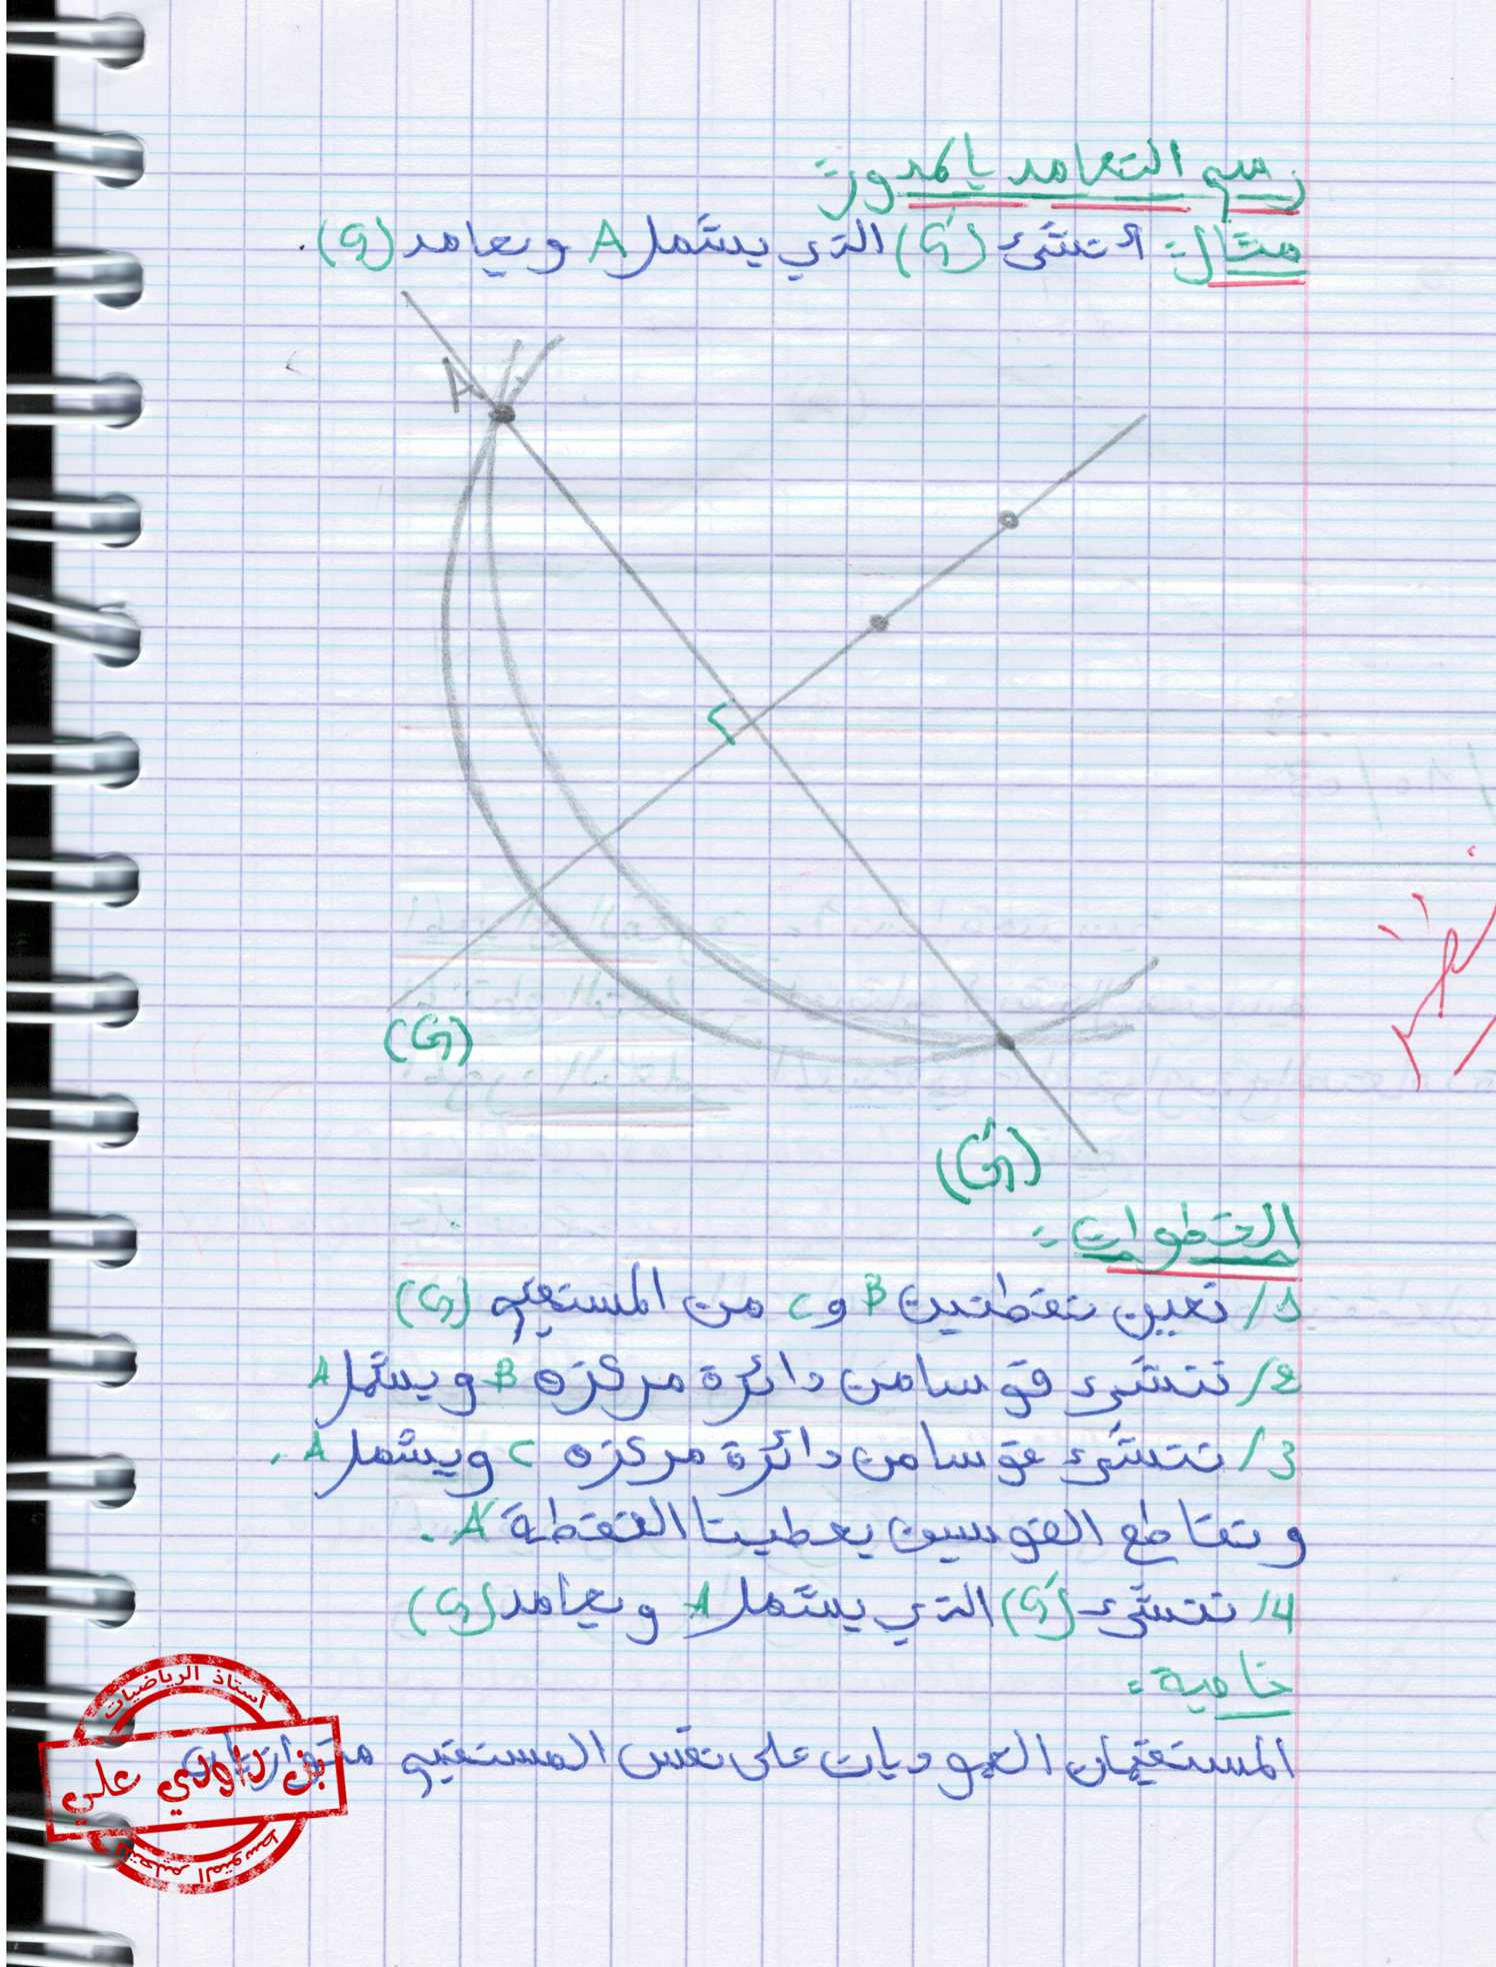 رسم التعامد بالمدور:
مثال: انشئ (G') الذي يشمل A ويعامد (G).
A
(G)
(G')
الخطوات:
1/ نعين نقطتين B و C من المستقيم (G)
2/ ننشئ قوسا من دائرة مركزه B ويشمل A
3/ ننشئ قوسا من دائرة مركزه C ويشمل A.
وتقاطع القوسين يعطينا النقطة A'.
4/ ننشئ (G') الذي يشمل A ويعامد (G)
خاصية:
المستقيمان العموديان على نفس المستقيم متوازيان
أستاذ الرياضيات
بن داودي علي
للتعليم المتوسط